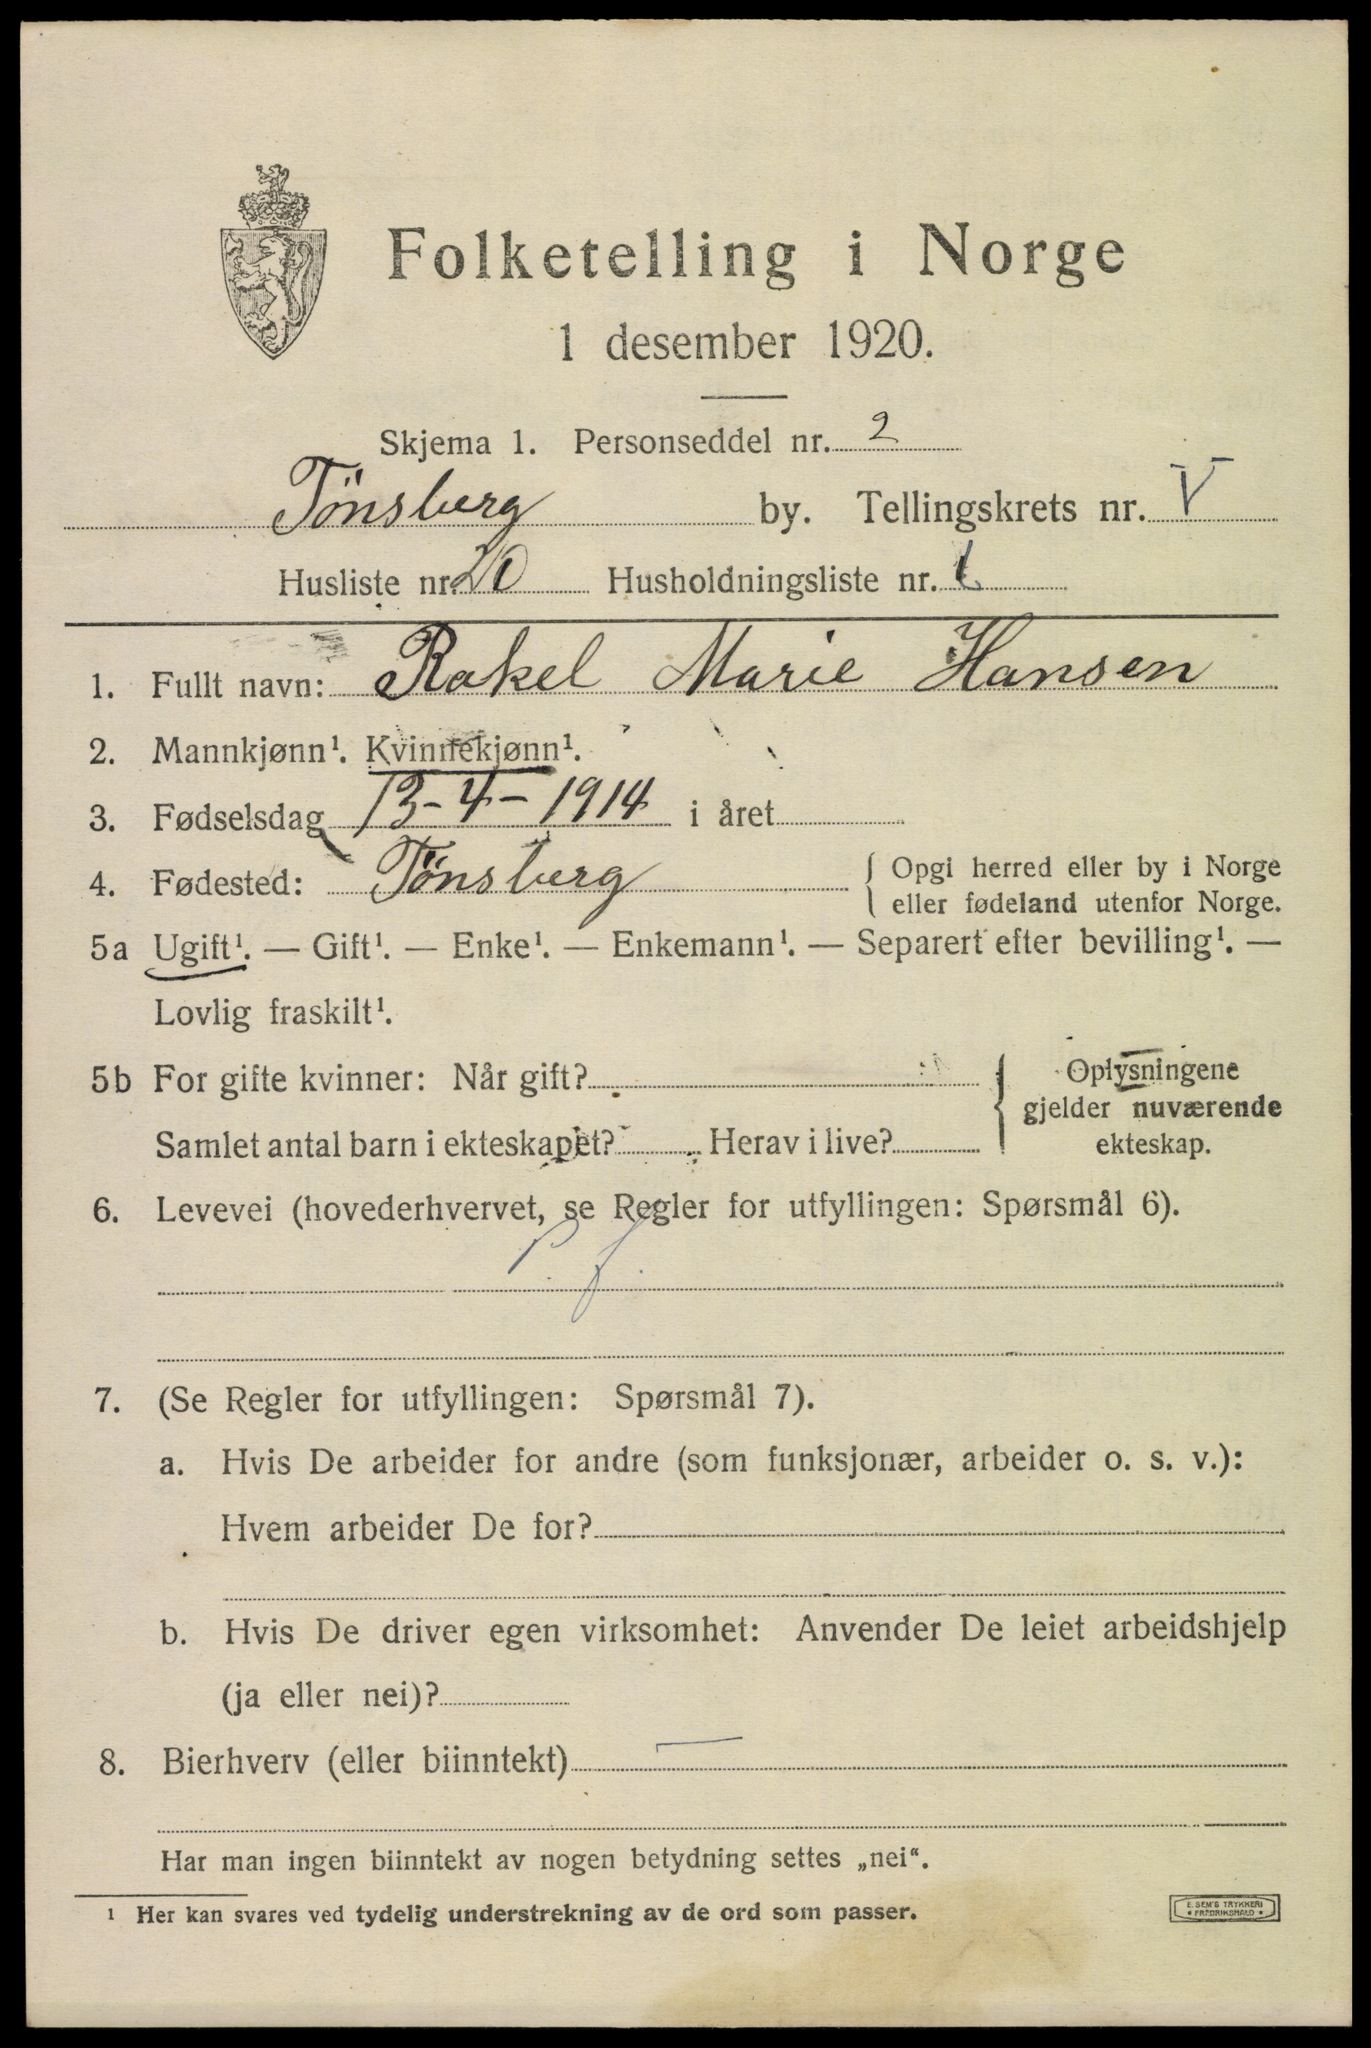 Folketelling i Norge
1 desember 1920.
Skjema 1. Personseddel nr. 2
Tönsberg by. Tellingskrets nr. V
Husliste nr. 20 Husholdningsliste nr. 1
1. Fullt navn: Rakel Marie Hansen
2. Mannkjønn¹. Kvinnekjønn¹.
3. Fødselsdag 13-4-1914 i året
4. Fødested: Tönsberg { Opgi herred eller by i Norge
eller fødeland utenfor Norge.
5a Ugift¹. — Gift¹. — Enke¹. — Enkemann¹. — Separert efter bevilling¹. —
Lovlig fraskilt¹.
5b For gifte kvinner: Når gift? { Oplysningene
gjelder nuværende
ekteskap.
Samlet antal barn i ekteskapet? Herav i live?
6. Levevei (hovederhvervet, se Regler for utfyllingen: Spørsmål 6).
p. f.
7. (Se Regler for utfyllingen: Spørsmål 7).
a. Hvis De arbeider for andre (som funksjonær, arbeider o. s. v.):
Hvem arbeider De for?
b. Hvis De driver egen virksomhet: Anvender De leiet arbeidshjelp
(ja eller nei)?
8. Bierhverv (eller biinntekt) —
Har man ingen biinntekt av nogen betydning settes „nei“.
¹ Her kan svares ved tydelig understrekning av de ord som passer.
E. SEM'S TRYKKERI
* FREDRIKSHALD *